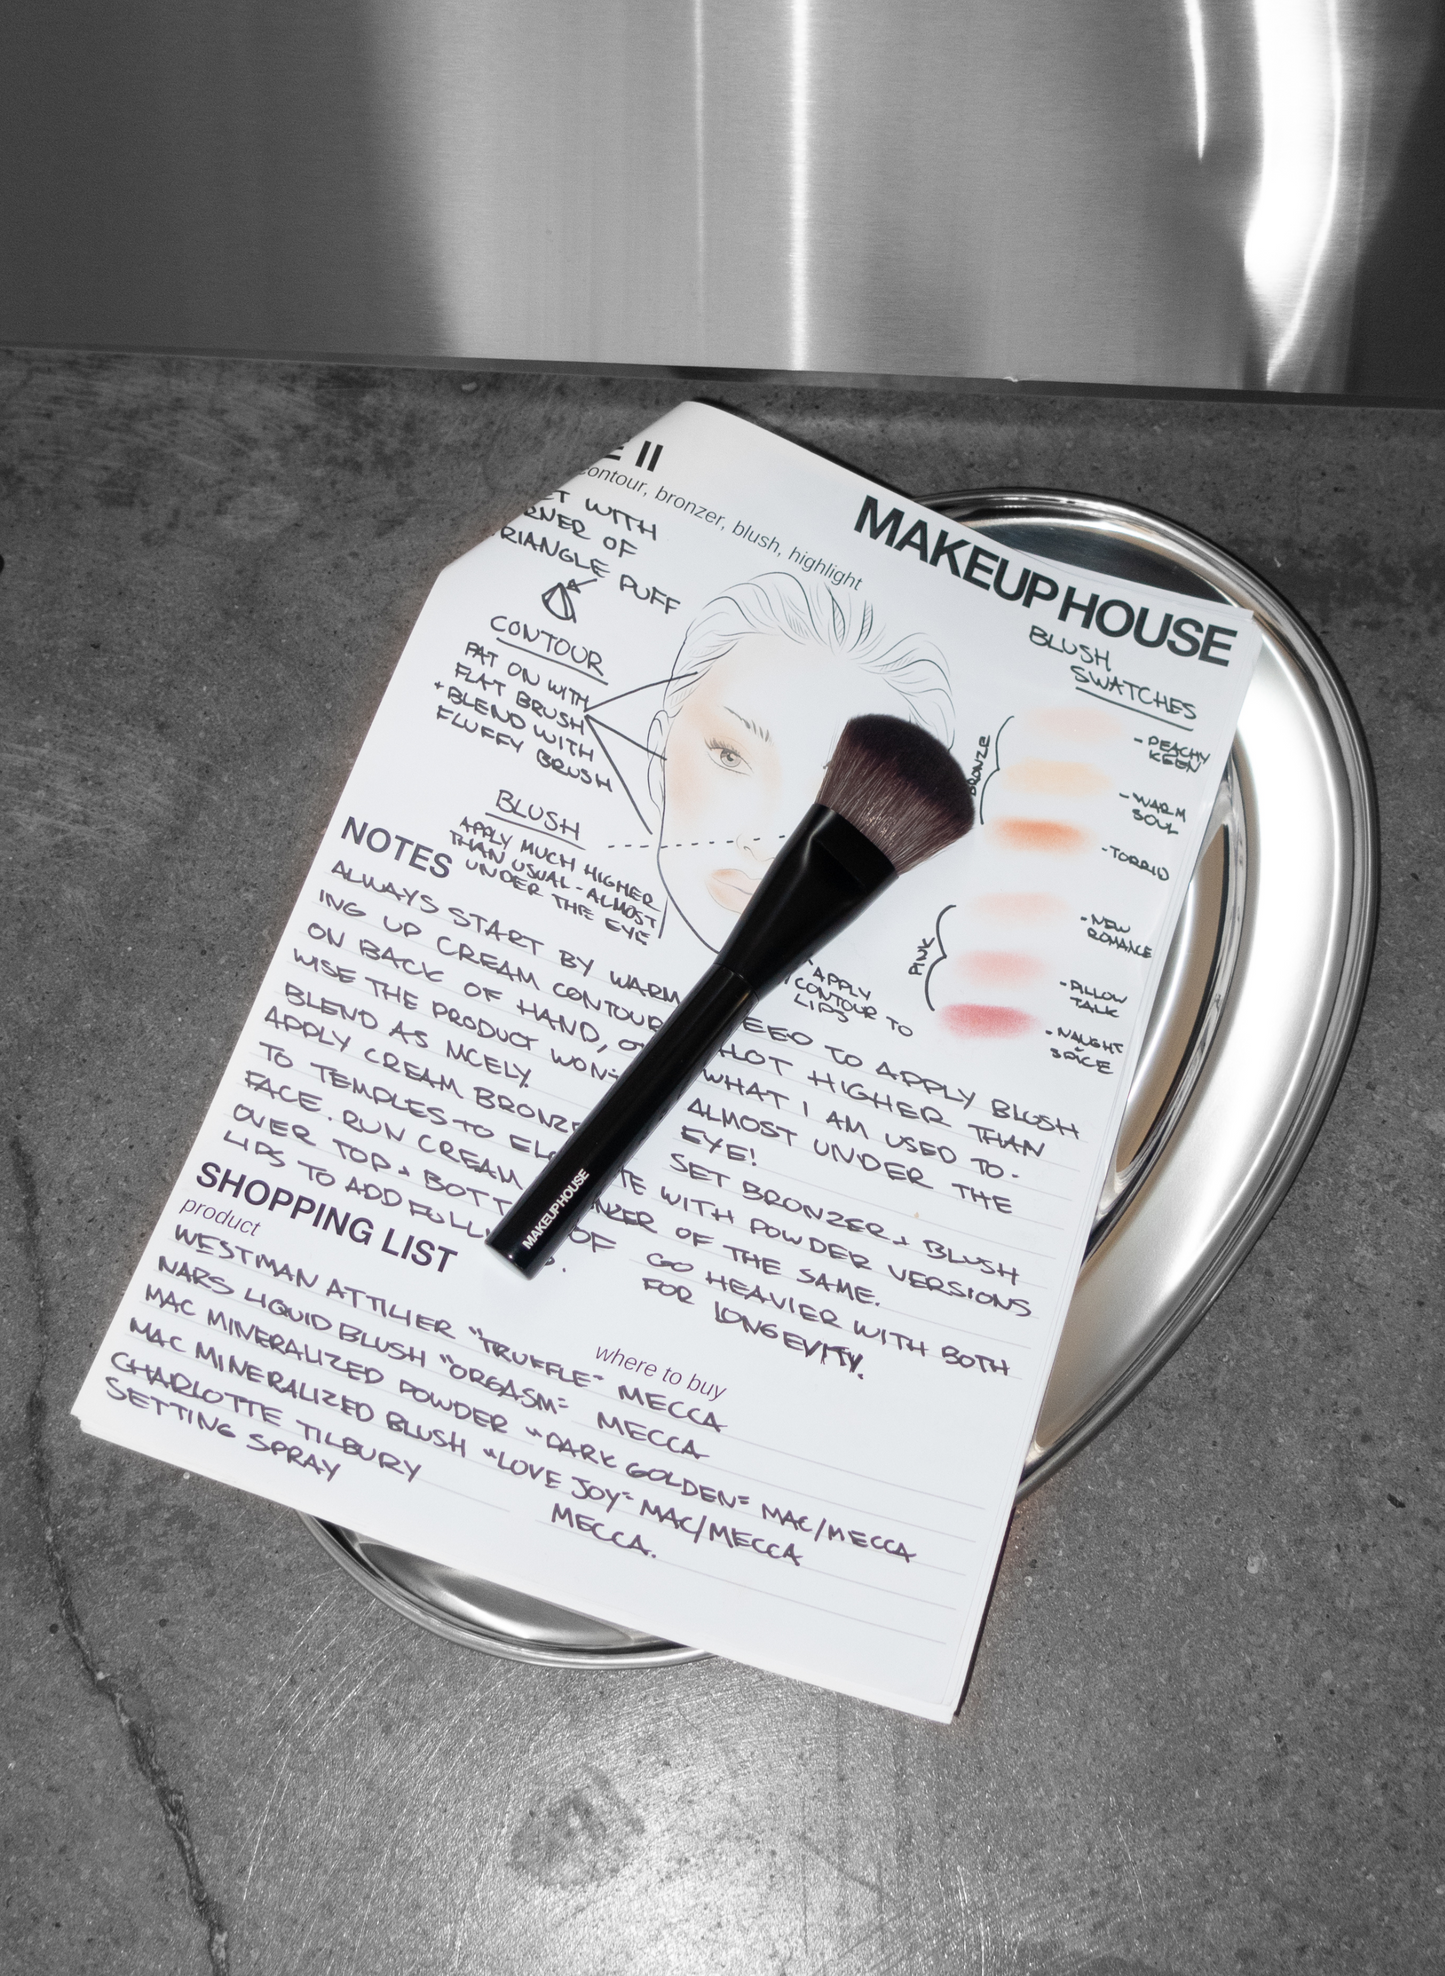 II
contour, bronzer, blush, highlight
MAKEUP HOUSE
WITH
OF
PUFF
CONTOUR
PAT ON WITH
FLAT BRUSH
+ BLEND WITH
FLUFFY BRUSH
BLUSH
APPLY MUCH HIGHER
THAN USUAL - ALMOST
UNDER THE EYE
BLUSH
SWATCHES
BRONZE
- PEACHY
KEEN
- WARM
SOUL
- TORRID
PINK
- NEW
ROMANCE
- PILLOW
TALK
- NAUGHT
SPICE
APPLY
CONTOUR TO
LIPS
NOTES
ALWAYS START BY WARM
ING UP CREAM CONTOUR
ON BACK OF HAND,
WISE THE PRODUCT WON'T
BLEND AS NICELY.
APPLY CREAM
TO TEMPLES TO
FACE. RUN CREAM
OVER TOP +
LIPS TO ADD
OF
TO APPLY BLUSH
HIGHER THAN
WHAT I AM USED TO -
ALMOST UNDER THE
EYE!
SET BRONZER + BLUSH
WITH POWDER VERSIONS
OF THE SAME.
GO HEAVIER WITH BOTH
FOR LONGEVITY.
SHOPPING LIST
product
where to buy
WESTMAN ATTILIER "TRUFFLE" MECCA
NARS LIQUID BLUSH "ORGASM" MECCA
MAC MINERALIZED POWDER "DARK GOLDEN" MAC/MECCA
MAC MINERALIZED BLUSH "LOVE JOY" MAC/MECCA
CHARLOTTE TILBURY
SETTING SPRAY MECCA.
MAKEUP HOUSE